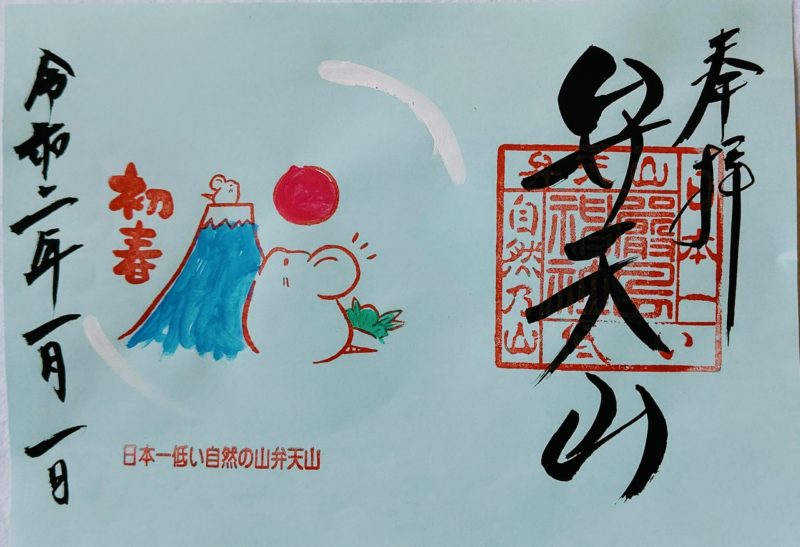 奉拝
弁天山
弁天山
日本一
嚴島
神社
自然乃山
初春
日本一低い自然の山弁天山
令和二年一月一日